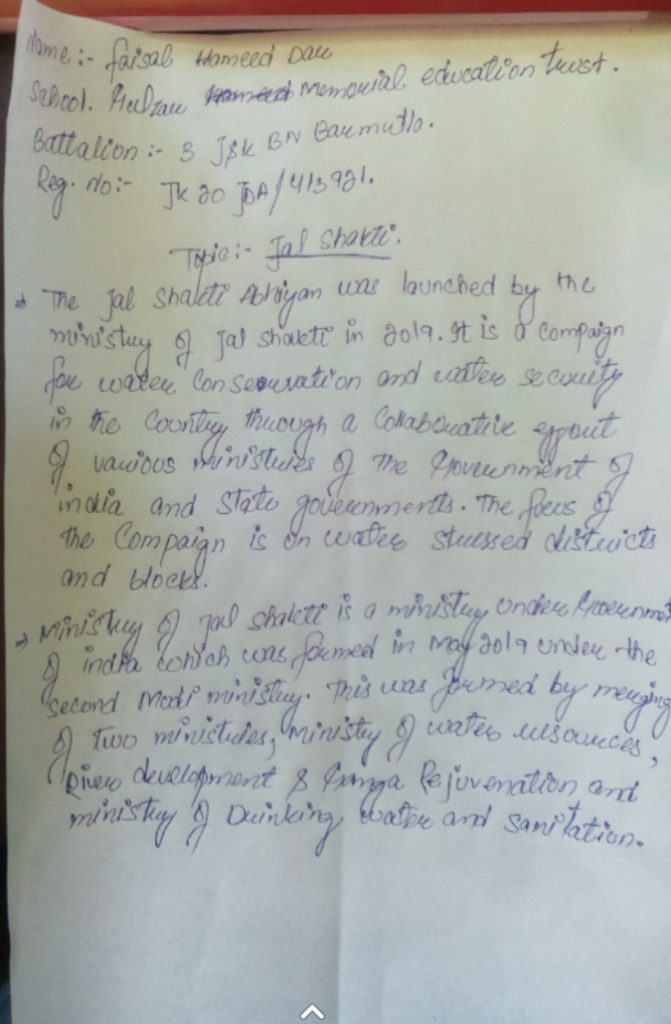 Name :- Faisal Hameed Dar
School. Gulzar Memorial education trust.
Battalion :- 3 J&K BN Barmullo.
Reg. No :- JK 20 JDA/413921.
Topic :- Jal Shakti.
→ The Jal Shakti Abhiyan was launched by the
ministry of Jal Shakti in 2019. It is a Compaign
for water Conservation and water security
in the Country through a Collaborative effort
of various ministries of the Government of
india and State governments. The focus of
the Compaign is on water stressed districts
and blocks.
→ Ministry of Jal Shakti is a ministry under Governmet
of india which was formed in may 2019 under the
second Modi ministry. This was formed by merging
of Two ministries, Ministry of water resources,
River development & Ganga Rejuvenation and
ministry of Drinking water and sanitation.